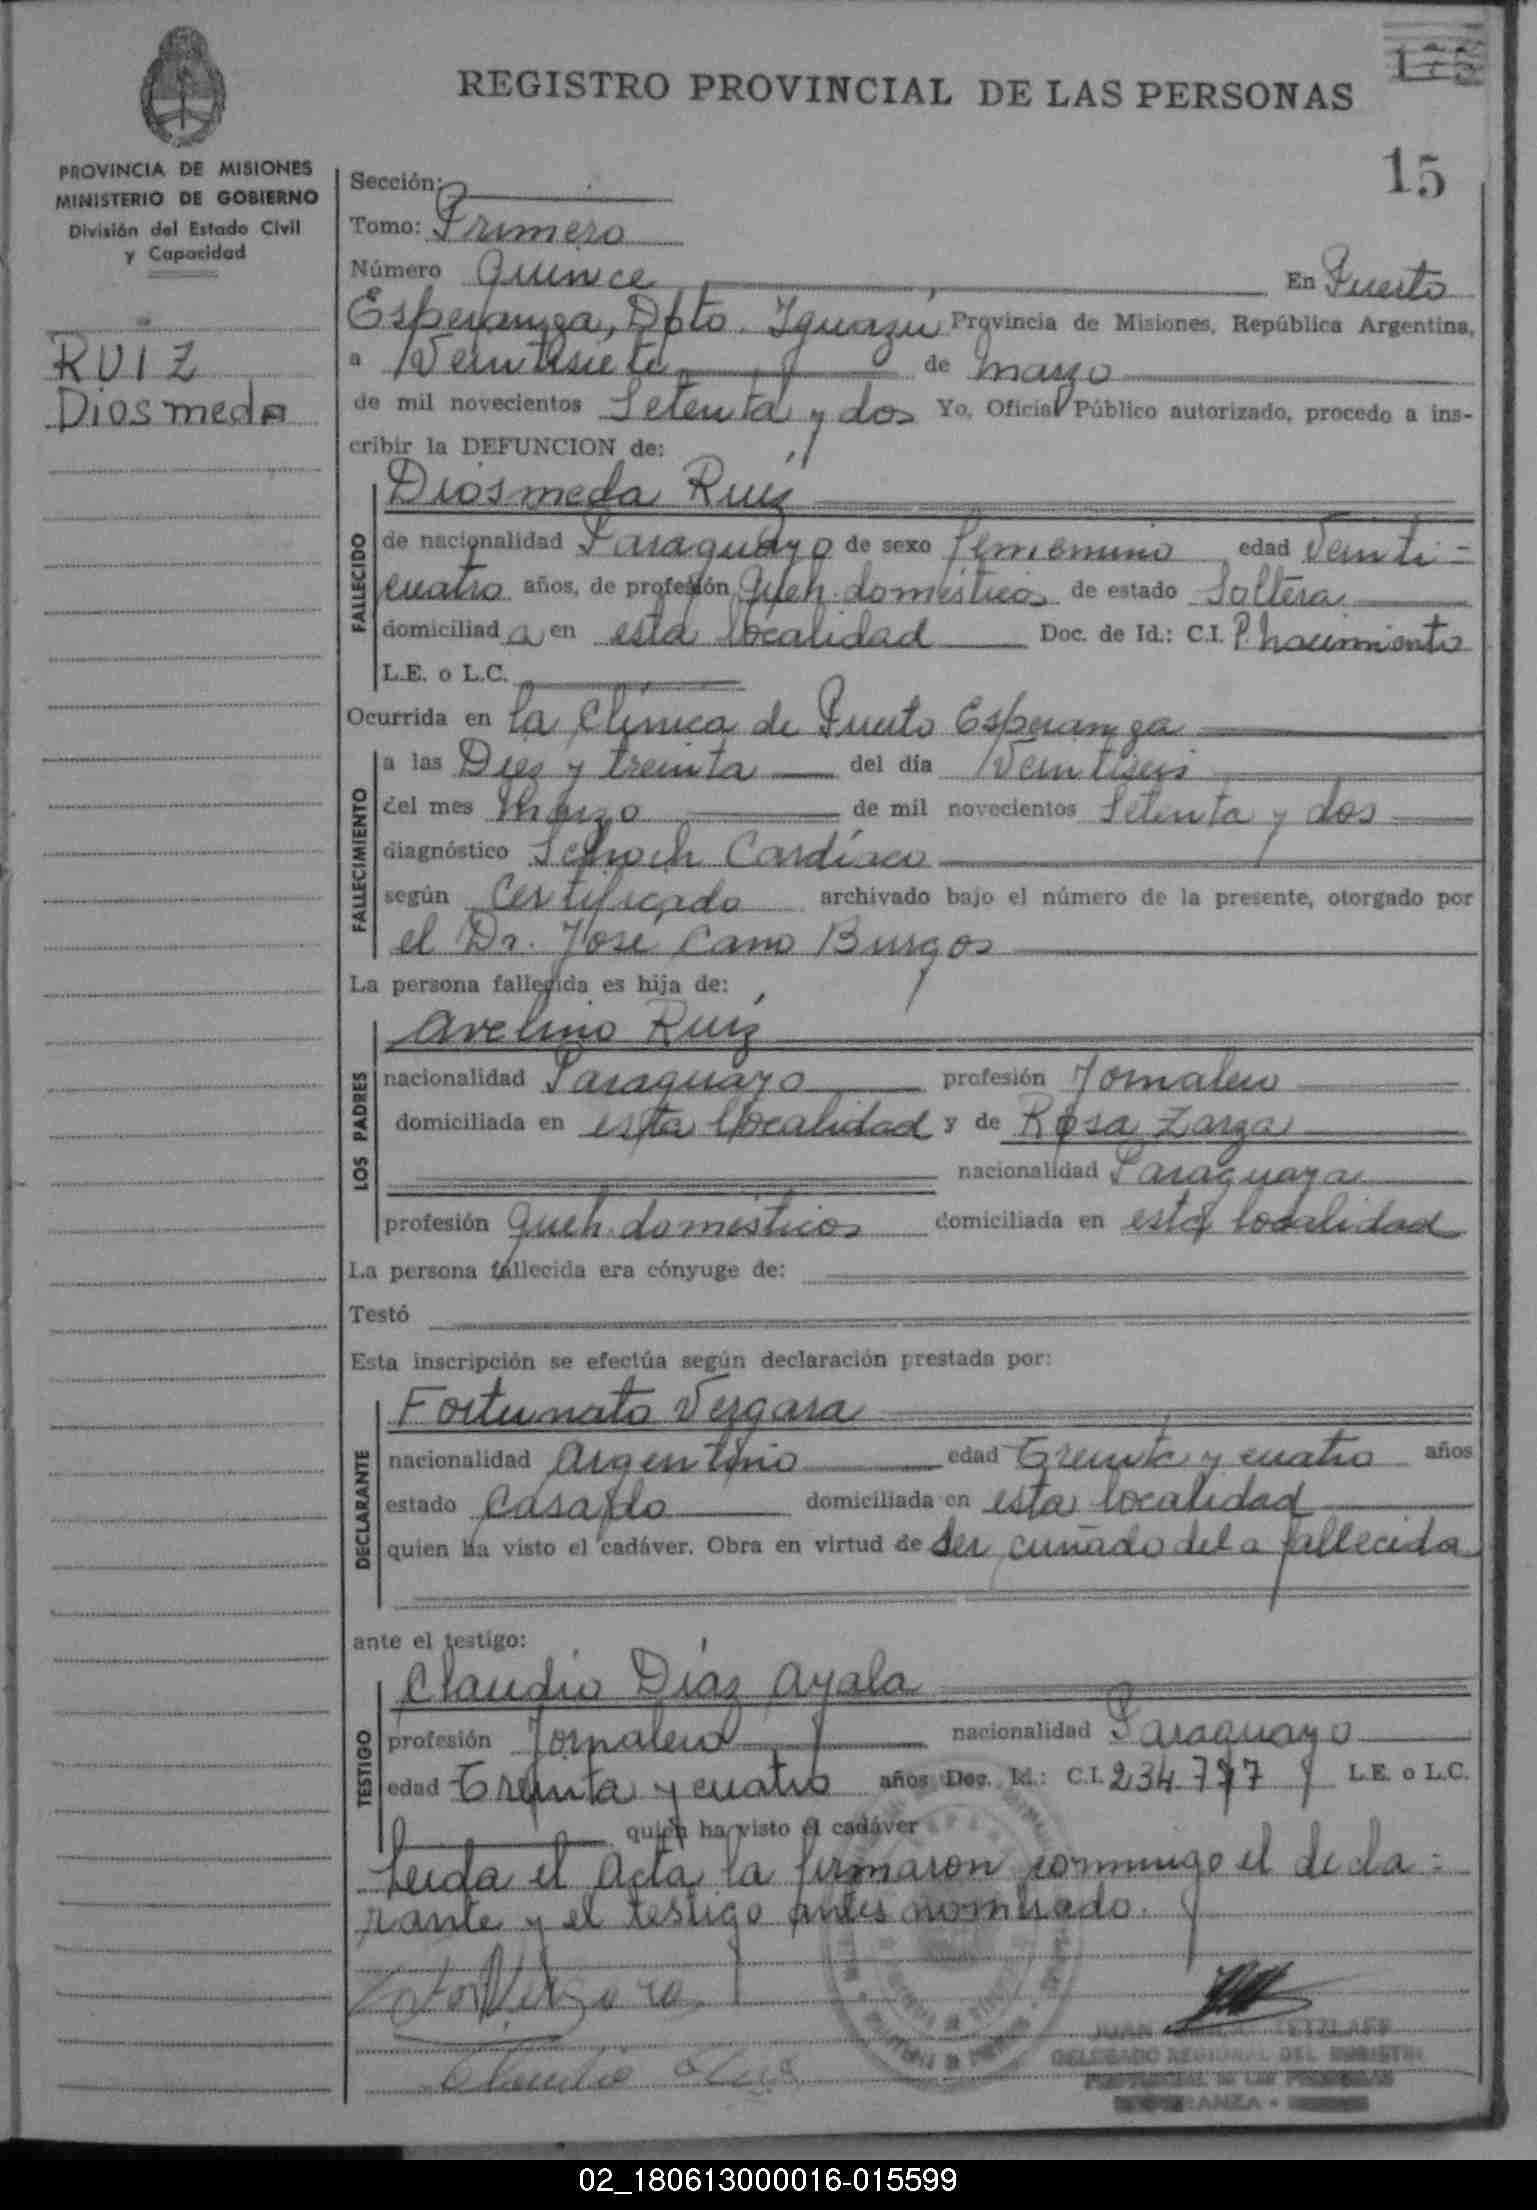 REGISTRO PROVINCIAL DE LAS PERSONAS
15
PROVINCIA DE MISIONES
MINISTERIO DE GOBIERNO
División del Estado Civil
y Capacidad
RUIZ
Diosmeda
Sección:
Tomo: Primero
Número Quince En Puerto
Esperanza, Dpto. Iguazú Provincia de Misiones, República Argentina,
a Veintisiete de marzo
de mil novecientos Setenta y dos Yo, Oficial Público autorizado, procedo a ins-
cribir la DEFUNCION de:
Diosmeda Ruíz
FALLECIDO
de nacionalidad Paraguayo de sexo femenino edad Veinti-
cuatro años, de profesión Queh. domésticos de estado Soltera
domiciliad a en esta localidad Doc. de Id.: C.I. P. nacimiento
L.E. o L.C.
Ocurrida en la Clínica de Puerto Esperanza
FALLECIMIENTO
a las Diez y treinta del día Veintiseis
del mes Marzo de mil novecientos Setenta y dos
diagnóstico Schoch Cardíaco
según Certificado archivado bajo el número de la presente, otorgado por
el Dr. José Cano Burgos
La persona fallecida es hija de:
LOS PADRES
Avelino Ruíz
nacionalidad Paraguayo profesión Jornalero
domiciliada en esta localidad y de Rosa Zarza
nacionalidad Paraguaya
profesión Queh. domésticos domiciliada en esta localidad
La persona fallecida era cónyuge de:
Testó
Esta inscripción se efectúa según declaración prestada por:
DECLARANTE
Fortunato Vergara
nacionalidad Argentino edad Treinta y cuatro años
estado Casado domiciliada en esta localidad
quien ha visto el cadáver. Obra en virtud de ser cuñado de la fallecida
ante el testigo:
TESTIGO
Claudio Díaz Ayala
profesión Jornalero nacionalidad Paraguayo
edad Treinta y cuatro años Doc. Id.: C.I. 234.777 L.E. o L.C.
quien ha visto el cadáver
Leida el Acta la firmaron conmigo el decla-
rante y el testigo antes nombrado.
JUAN TETZLAFF
DELEGADO REGIONAL DEL REGISTRO
PROVINCIAL DE LAS PERSONAS
02_180613000016-015599